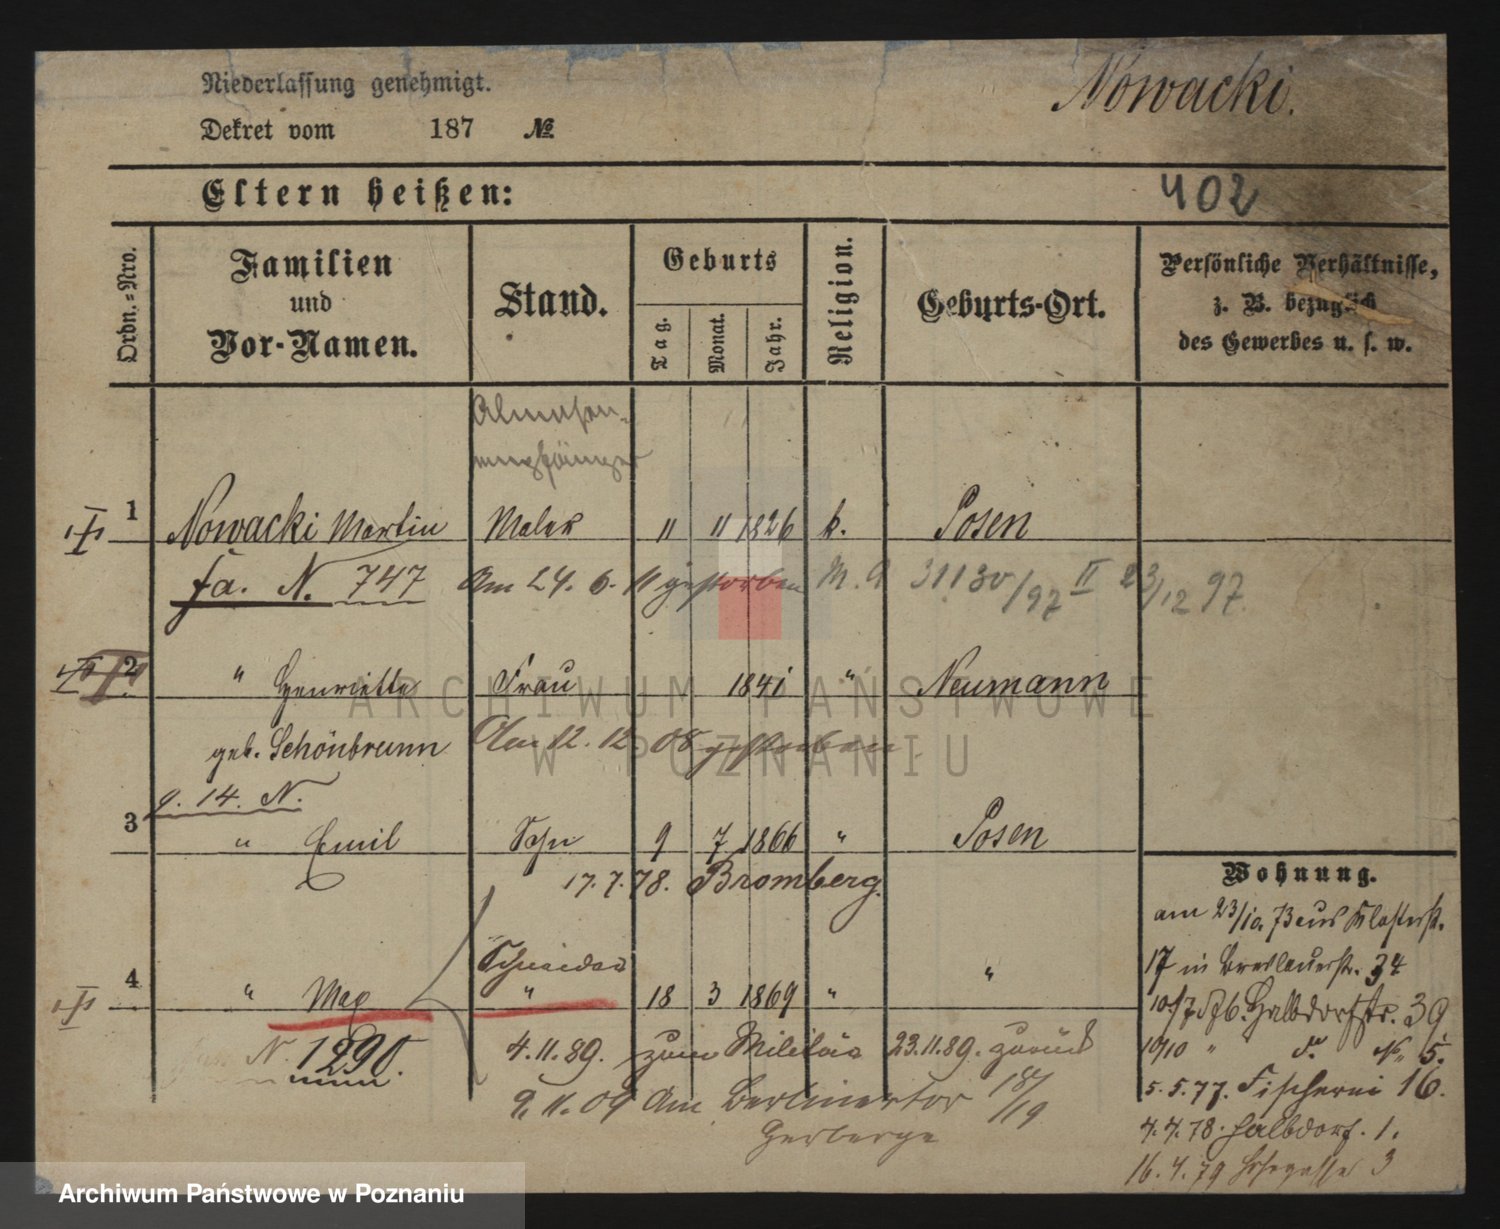 Niederlassung genehmigt.
Nowacki.
Dekret vom 187 №
Eltern heißen:
402
Ordn.=Nro.
Familien
und
Vor-Namen.
Stand.
Geburts
Tag.
Monat.
Jahr.
Religion.
Geburts-Ort.
Persönliche Verhältnisse,
z. B. bezüglich
des Gewerbes u. s. w.
Almosen-
empfänger
1 Nowacki Martin Maler 11 11 1826 k. Posen
fa. N. 747 Am 24. 6. 11 gestorben 31130/97 II 23/12 97.
2 " Henriette Frau 1841 " Neumann
geb. Schönbrunn Am 12. 12. 08 gestorben
q. 14. N.
3 " Emil Sohn 9 7 1866 " Posen
17. 7. 78. Bromberg.
Schneider
4 " Max " 18 3 1869 " "
N. 1290. 4. 11. 89. zum Militär 23. 11. 89. zurück
9. 11. 09 Am Berlinertor 18/19
Herberge
Wohnung.
am 23/10. 73 aus Klosterst.
17 in Breslauerst. 34
10/7 76. Halbdorfstr. 39.
19/10 " do. No. 5.
5. 5. 77. Fischerei 16.
4. 4. 78. Halbdorf. 1.
16. 4. 79 3
ARCHIWUM PAŃSTWOWE
W POZNANIU
Archiwum Państwowe w Poznaniu